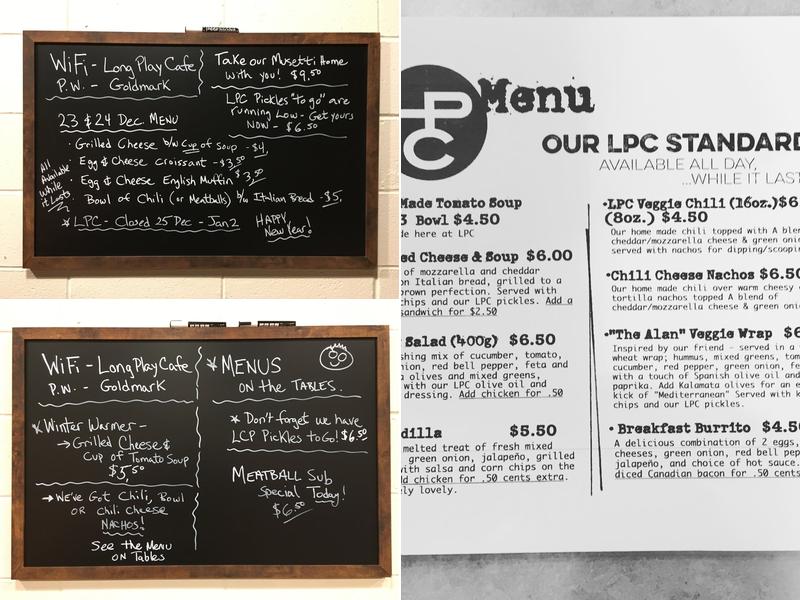 WiFi - Long Play Cafe
P.W. - Goldmark
23 & 24 Dec MENU
· Grilled Cheese b/w Cup of Soup - $4,
· Egg & Cheese croissant - $3,50
· Egg & Cheese English Muffin $3,50
· Bowl of Chili (or Meatballs) b/w Italian Bread - $5,
All
Available
while
it Lasts
* LPC - Closed 25 Dec - Jan 2
HAPPY
New Year!
Take our Musetti Home
with you! $9,50
LPC Pickles "to go" are
running Low - Get yours
NOW - $6.50
WiFi - Long Play Cafe
P.W. - Goldmark
* Winter Warmer -
→ Grilled Cheese &
Cup of Tomato Soup
$5,50
→ We've Got Chili, Bowl
OR Chili Cheese
NACHOS!
See the Menu
on Tables
* MENUS
ON the TABLES.
* Don't forget we have
LCP Pickles to Go! $6.50
MEATBALL Sub
Special Today!
$6.50
LPC
Menu
OUR LPC STANDARD
AVAILABLE ALL DAY,
...WHILE IT LAST
Made Tomato Soup
3 Bowl $4.50
de here at LPC
ed Cheese & Soup $6.00
of mozzarella and cheddar
on Italian bread, grilled to a
rown perfection. Served with
chips and our LPC pickles. Add a
sandwich for $2.50
Salad (400g) $6.50
shing mix of cucumber, tomato,
nion, red bell pepper, feta and
a olives and mixed greens,
with our LPC olive oil and
dressing. Add chicken for .50
dilla $5.50
melted treat of fresh mixed
green onion, jalapeño, grilled
with salsa and corn chips on the
dd chicken for .50 cents extra.
ely lovely.
•LPC Veggie Chili (16oz.)$6
(8oz.) $4.50
Our home made chili topped with A blen
cheddar/mozzarella cheese & green onio
served with nachos for dipping/scoopin
•Chili Cheese Nachos $6.50
Our home made chili over warm cheesy
tortilla nachos topped A blend of
cheddar/mozzarella cheese & green onio
•"The Alan" Veggie Wrap $6
Inspired by our friend - served in a
wheat wrap; hummus, mixed greens, tom
cucumber, red pepper, green onion, fe
with a touch of Spanish olive oil and
paprika. Add Kalamata olives for an e
kick of "Mediterranean" Served with k
chips and our LPC pickles.
• Breakfast Burrito $4.50
A delicious combination of 2 eggs,
cheeses, green onion, red bell pep
jalapeño, and choice of hot sauce.
diced Canadian bacon for .50 cents